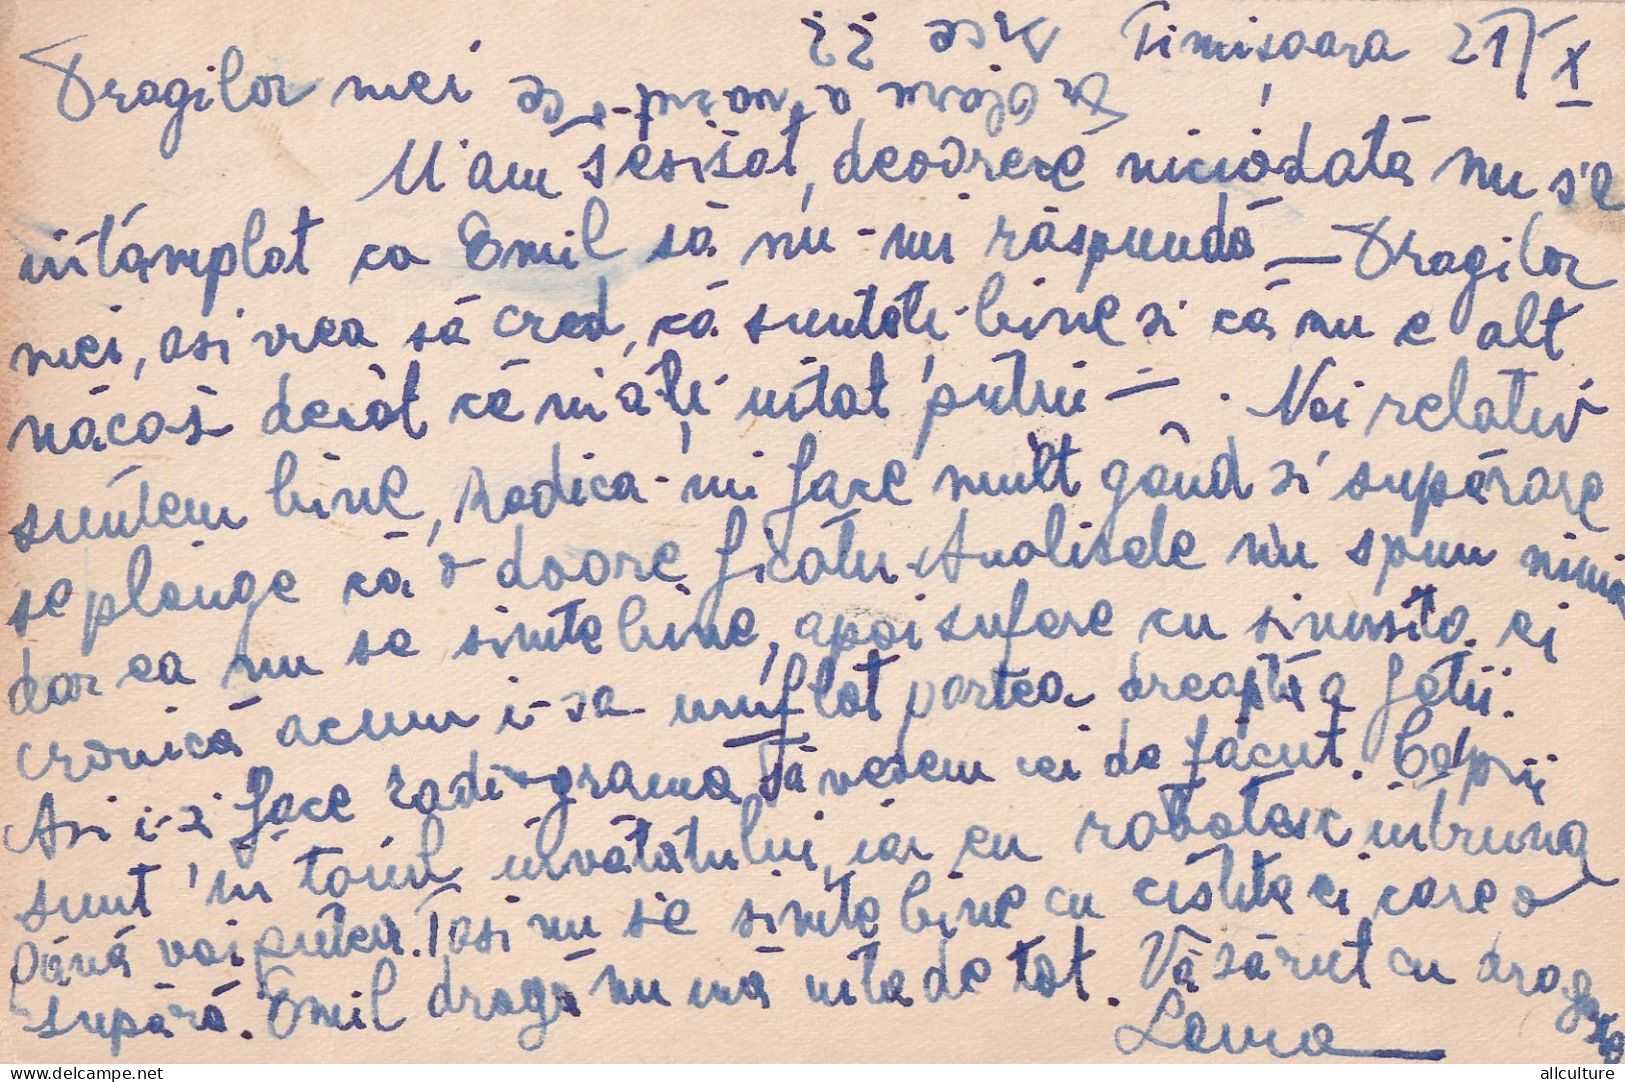 Timișoara 21/X
Dragilor mei
M'am sesisat, deoarece niciodată nu s'a
întâmplat ca Emil să nu-mi răspundă — Dragilor
mei, asi vrea să cred, că sunteti bine si că nu e alt
năcaz decât că m'ati uitat puțin — . Noi relativ
suntem bine, Rodica-mi face mult gând si supărare
se plânge că o doare ficatu. Analisele nu spun nimic
dar ea nu se simte bine, apoi sufere cu sinusita ei
cronică acum i-sa umflat partea dreaptă a fetii.
Asi i-si face radiograma să vedem cei de făcut. Copii
sunt în toiul învătătului, iar eu robotesc intruna
până voi putea. Tasi nu se simte bine cu cistita ei care o
supără. Emil dragă nu mă uita de tot. Vă sărut cu dragoste
allculture